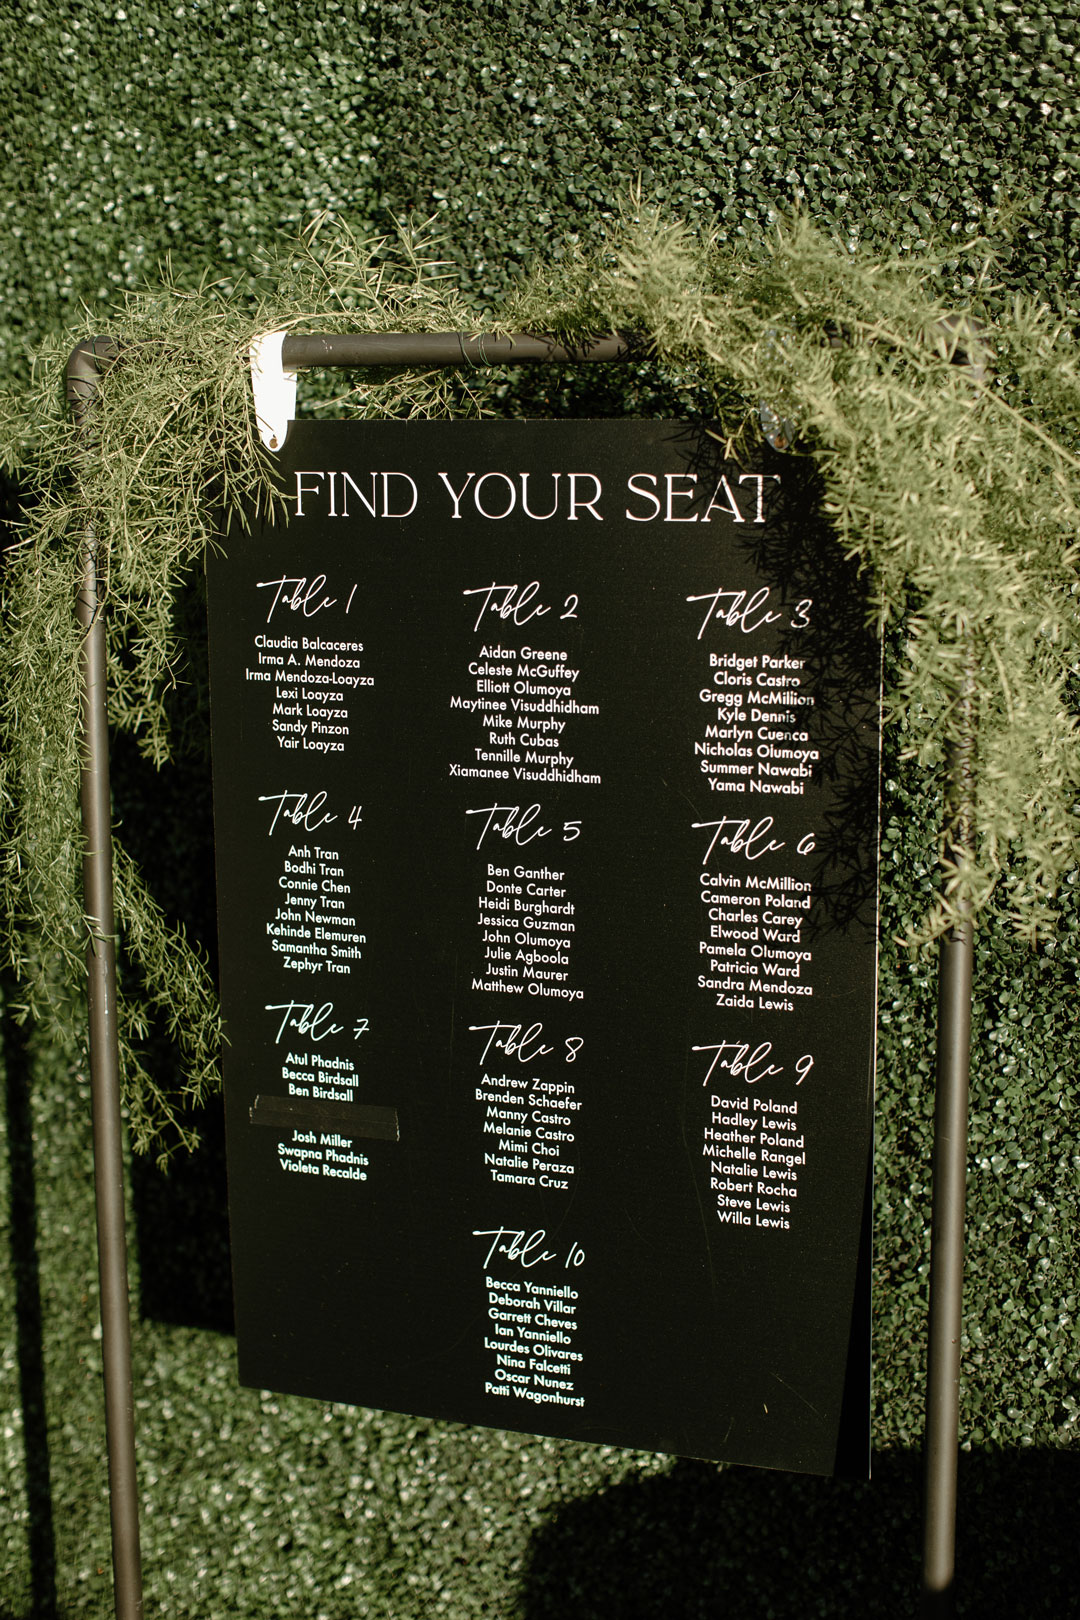 FIND YOUR SEAT
Table 1
Claudia Balcaceres
Irma A. Mendoza
Irma Mendoza-Loayza
Lexi Loayza
Mark Loayza
Sandy Pinzon
Yair Loayza
Table 2
Aidan Greene
Celeste McGuffey
Elliott Olumoya
Maytinee Visuddhidham
Mike Murphy
Ruth Cubas
Tennille Murphy
Xiamanee Visuddhidham
Table 3
Bridget Parker
Cloris Castro
Gregg McMillion
Kyle Dennis
Marlyn Cuenca
Nicholas Olumoya
Summer Nawabi
Yama Nawabi
Table 4
Anh Tran
Bodhi Tran
Connie Chen
Jenny Tran
John Newman
Kehinde Elemuren
Samantha Smith
Zephyr Tran
Table 5
Ben Ganther
Donte Carter
Heidi Burghardt
Jessica Guzman
John Olumoya
Julie Agboola
Justin Maurer
Matthew Olumoya
Table 6
Calvin McMillion
Cameron Poland
Charles Carey
Elwood Ward
Pamela Olumoya
Patricia Ward
Sandra Mendoza
Zaida Lewis
Table 7
Atul Phadnis
Becca Birdsall
Ben Birdsall
Josh Miller
Swapna Phadnis
Violeta Recalde
Table 8
Andrew Zappin
Brenden Schaefer
Manny Castro
Melanie Castro
Mimi Choi
Natalie Peraza
Tamara Cruz
Table 9
David Poland
Hadley Lewis
Heather Poland
Michelle Rangel
Natalie Lewis
Robert Rocha
Steve Lewis
Willa Lewis
Table 10
Becca Yanniello
Deborah Villar
Garrett Cheves
Ian Yanniello
Lourdes Olivares
Nina Falcetti
Oscar Nunez
Patti Wagonhurst